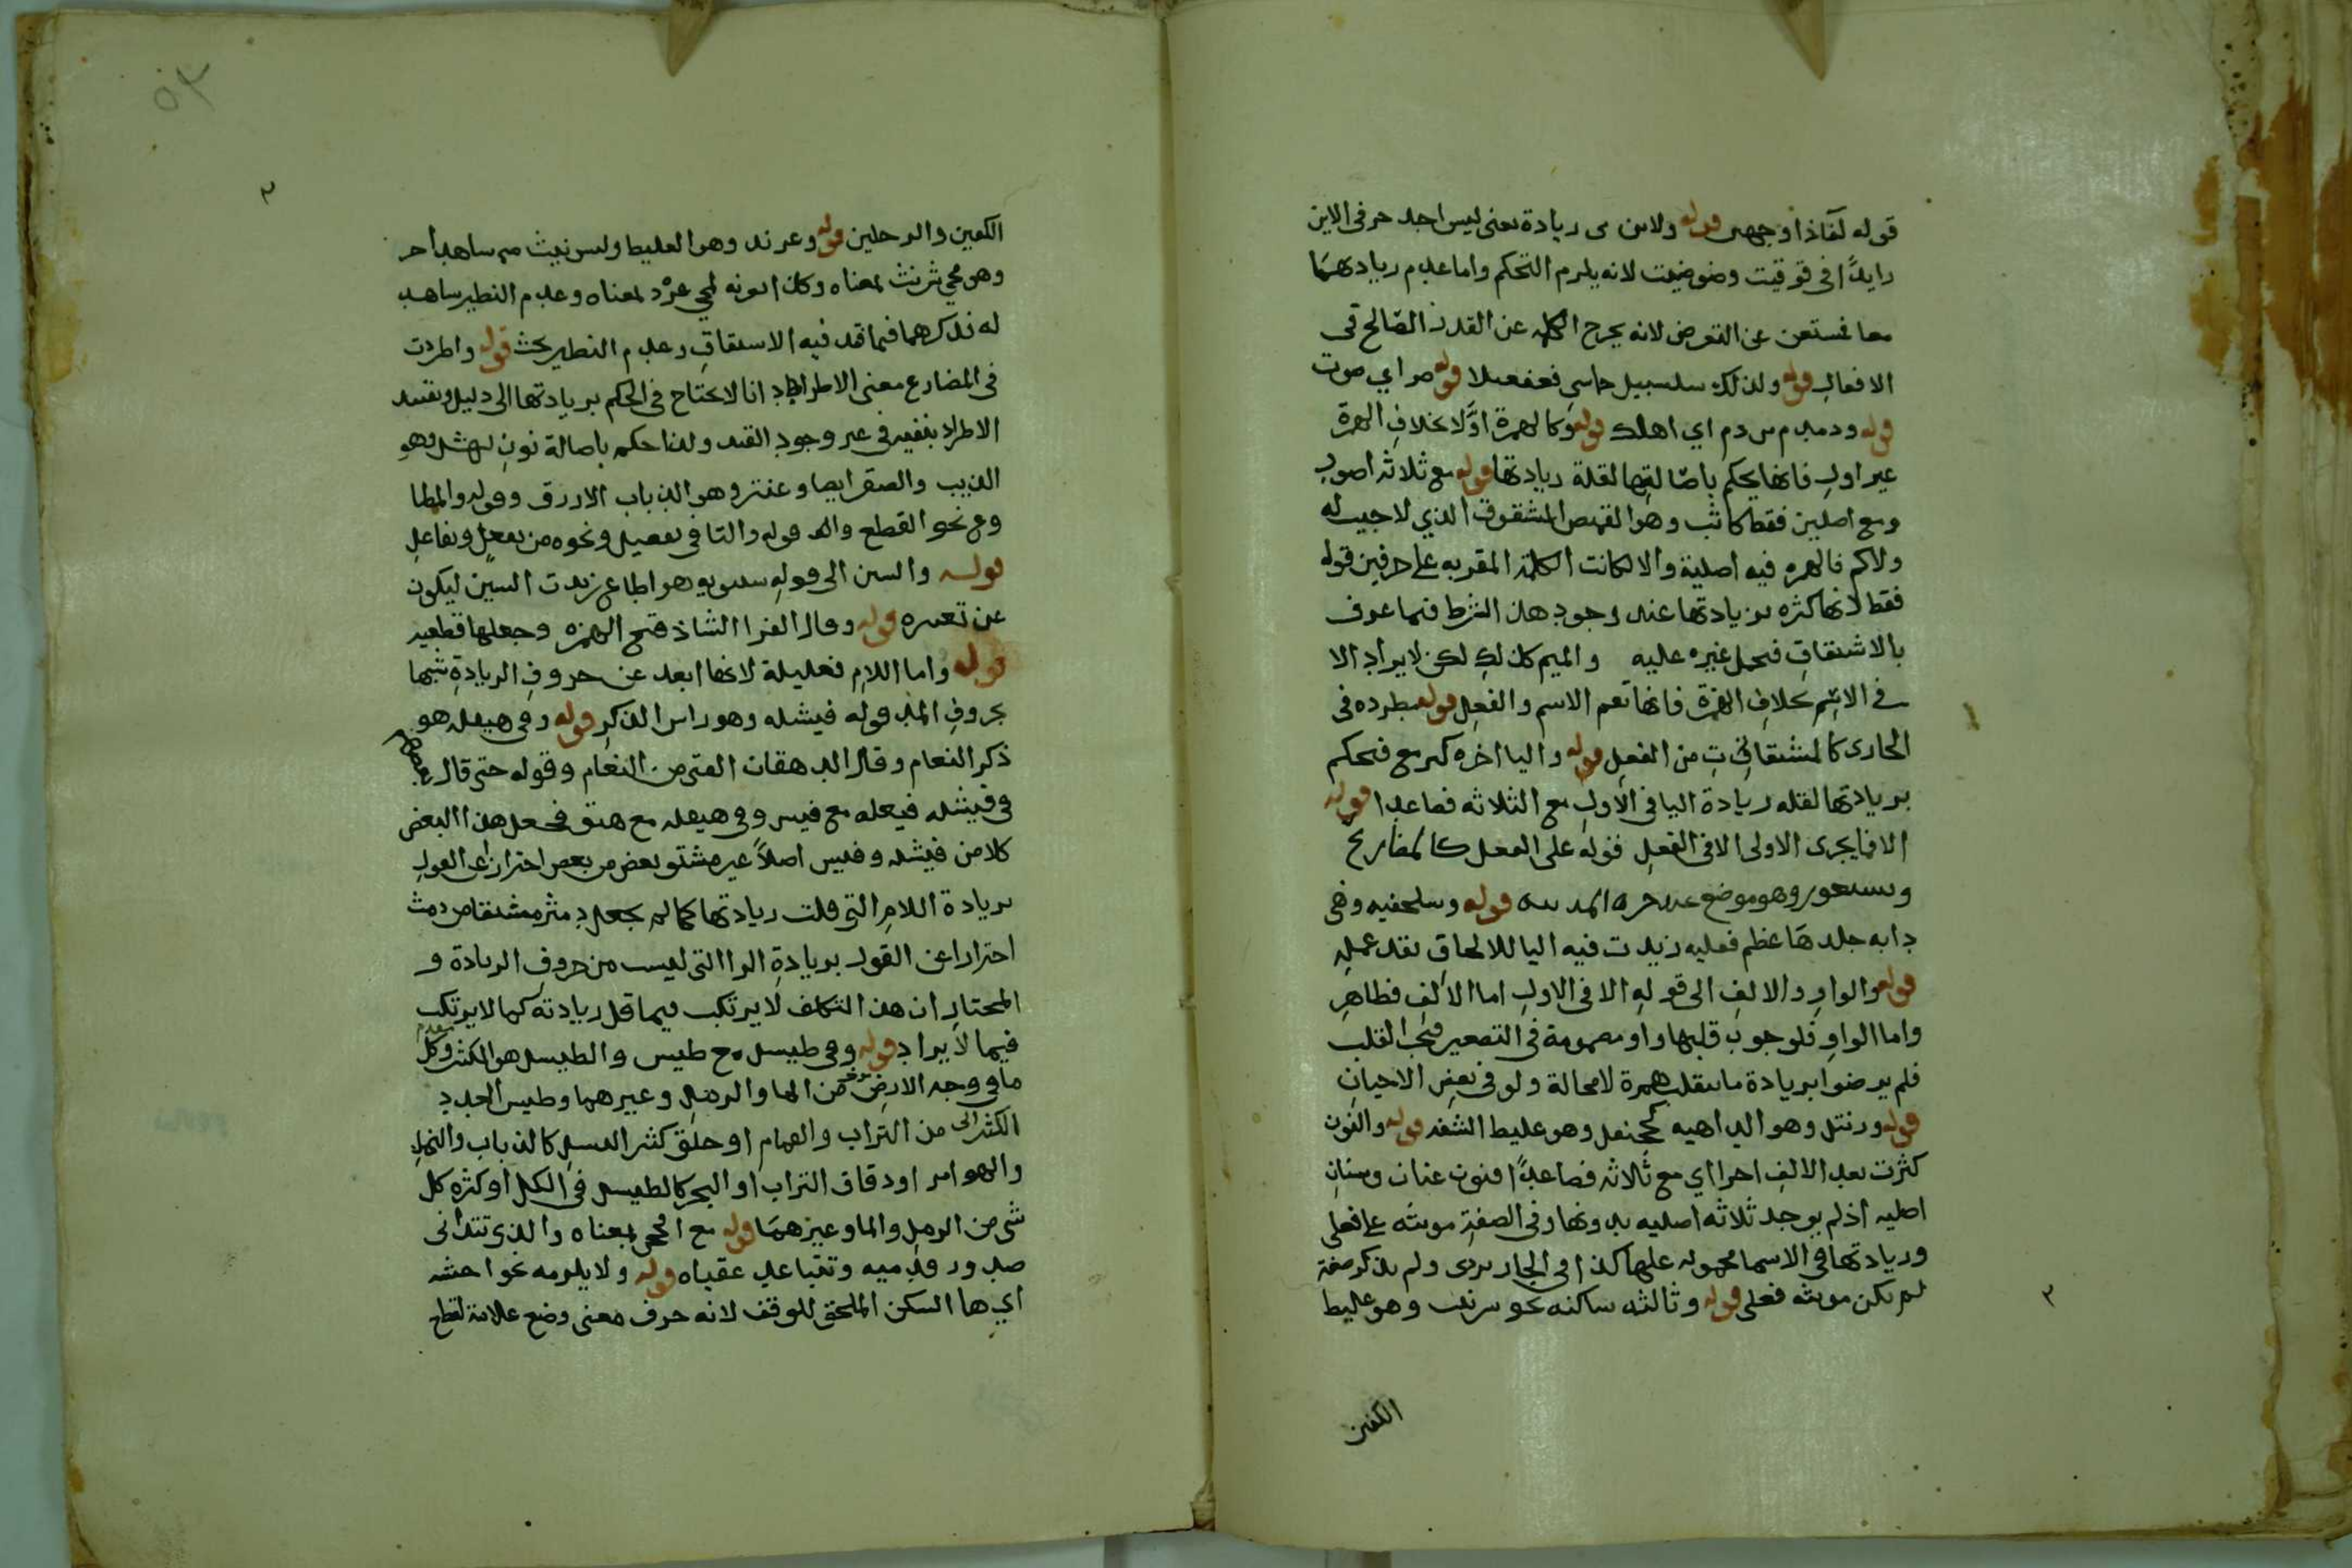 قوله لفاذا وجهى قوله ولاىن ى رىادة ىعنى ليس احد حرفى الاىن
راىدًا فى قوقيت وضوضيت لانه يلرم التحكم واما عدم رىادتهما
معا فستعن عن التعرض لانه يخرج الكلمه عن القدر الصالح فى
الافعال قوله ولذلك سلسبيل خماسى فعفعىلا قوله صر اي صوت
قوله ودمدم من دم اي اهلك قوله وكالهمزة اولا بخلاف الهمزة
غير اول فانها يحكم باصالتها لقلة ريادتها قوله مع ثلاثه اصول
ومع اصلين فقط كاتب وهو القميص المشقوق الذي لا جيب له
ولا كم فالهمزه فيه اصلية والا لكانت الكلمة المقربه على حرفين قوله
فقط لانها كثره بزيادتها عند وجود هذا الشرط فيما عرف
بالاشتقاق فحمل غيره عليه والميم كذلك لكن لا يراد الا
فى الاسم بخلاف الهمزة فانها تعم الاسم والفعل قوله مطرده فى
الجارى كالمشتقات من الفعل قوله واليا اخره كىر مع فىحكم
بريادتها لقله ريادة اليا فى الاول مع الثلاثه فصاعدا قوله
الا فىما يجرى الاولى الا فى الفعل قوله على الفعل كالمضارع
وىستعور وهو موضع عند حره المدىنه قوله وسلحفيه وهى
دابه جلدها عظم فعليه زيدت فيه اليا للالحاق بقدعمله
قوله والواو والالف الى قوله الا فى الاول اما الالف فظاهر
واما الواو فلوجوب قلبها واو مضمومة فى التصغير فىجب القلب
فلم يرضوا بريادة ما ىنقلب همزة لا محالة ولو فى بعض الاحيان
قوله ورنتل وهو الداهيه كجحنفل وهو غليظ الشفه قوله والنون
كثرت بعد الالف اخرا اي مع ثلاثه فصاعدًا فنون عنان وسنان
اصليه اذ لم يوجد ثلاثه اصليه بدونها وفى الصفة مونثه على فعلى
ورىادتها فى الاسما محموله عليها كذا فى الجاربردى ولم يذكر صفة
لم ىكن مونثه فعلى قوله وثالثه ساكنه نحو شرنبث وهو غليظ
الكفين
الكفين والرجلين قوله وعرند وهو الغليظ وليس نبث مىم ساهد اخر
وهو مجي شرنث بمعناه وكذا نونه لمجي عرّد بمعناه وعدم النظير ساهد
له نذكرهما فيما قد فيه الاستقاق وعدم النظير بحث قوله واطردت
فى المضارع معنى الاطراد انا لا نحتاج فى الحكم بريادتها الى دليل وىقىىد
الاطراد ىنفىه فى غىر وجود القىد ولذا حكم باصالة نون نهشل وهو
الذيب والصقر ايضا وعنتر وهو الذباب الازرق وقوله والمطا
وع نحو القطع واله قوله والتا فى ىفعىل ونحوه من ىفعل وىفاعل
قوله والسىن الى قوله سىبويه هو اطاع زيدت السين ليكون
عن تعىىره قوله وقال الفرا الشاذ فتح الهمزه وجعلها قطعيه
قوله واما اللام فقليلة لانها ابعد عن حروف الريادة شبها
بحروف المد قوله فيشله وهو راس الذكر قوله وفى هىقله هو
ذكر النعام وقال الدهقان الفتى من النعام وقوله حتى قال بعضهم
فى فيشله فيعله مع فيس وفى هيقله مع هىق فىجعل هذا البعض
كلا من فيشله وفيس اصلاً غير مشتق بعض من بعض احترازا عن القول
بريادة اللام التى قلت ريادتها كما لم يجعل دمثر مشتقا من دمث
احترازا عن القول بريادة الرا التى ليست من حروف الريادة و
المختار ان هذا التكلف لا يرتكب فىما قل ريادته كما لا يرتكب
فيما لا يراد قوله وفى طيسل مع طيس والطيسل هو الكثىر وكل
ما فى وجه الارض من الما والرمل وغيرهما وطيس العدد
الكثىر الى من التراب والقمام او خلق كثىر النسل كالذباب والنمل
والهوام او دقاق التراب او البحر كالطيسل فى الكل او كثره كل
شى من الرمل والما وغيرهما قوله مع افحج بمعناه والذى تتدانى
صدور قدميه وتتباعد عقباه قوله ولا يلرمه نحو اخشه
اي ها السكن الملحق للوقف لانه حرف معنى وضع علامة لقطع